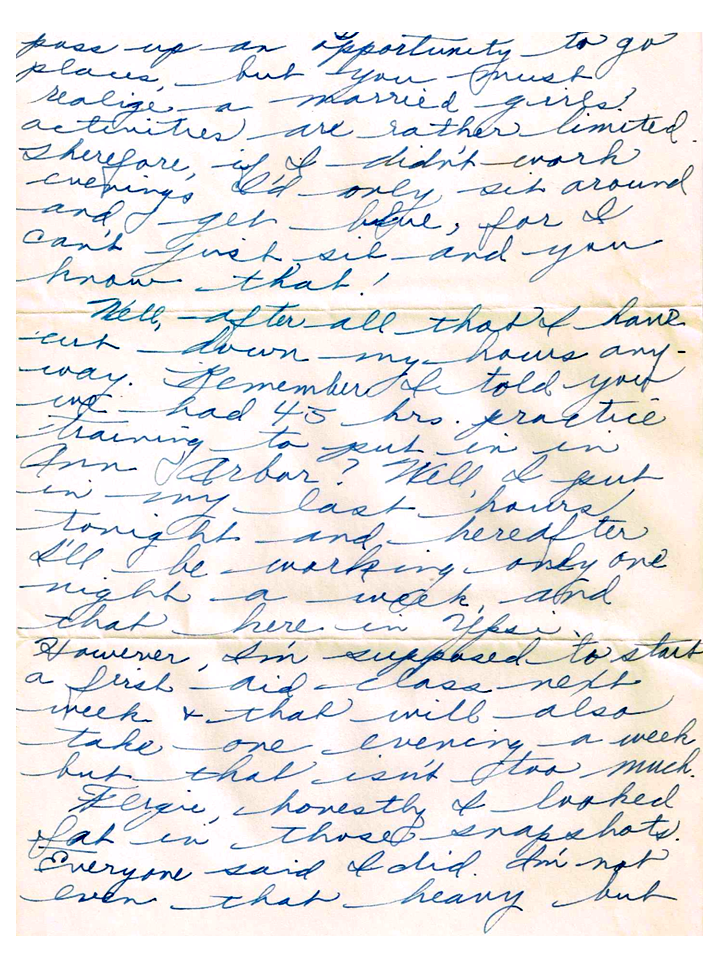 pass up an opportunity to go
places, but you must
realize a married girls?
activities are rather limited.
Therefore, if I didn't work
evenings I'd only sit around
and get blue, for I
can't just sit and you
know that!
Well, after all that I have
cut down my hours any-
way. Remember I told you
we had 45 hrs. practice
training to put in in
Ann Arbor? Well, I put
in my last hours
tonight and hereafter
I'll be working only one
night a week, and
that here in Ypsi.
However, I'm supposed to start
a first aid class next
week & that will also
take one evening a week
but that isn't too much.
Fergie, honestly I looked
fat in those snapshots.
Everyone said I did. I'm not
even that heavy but